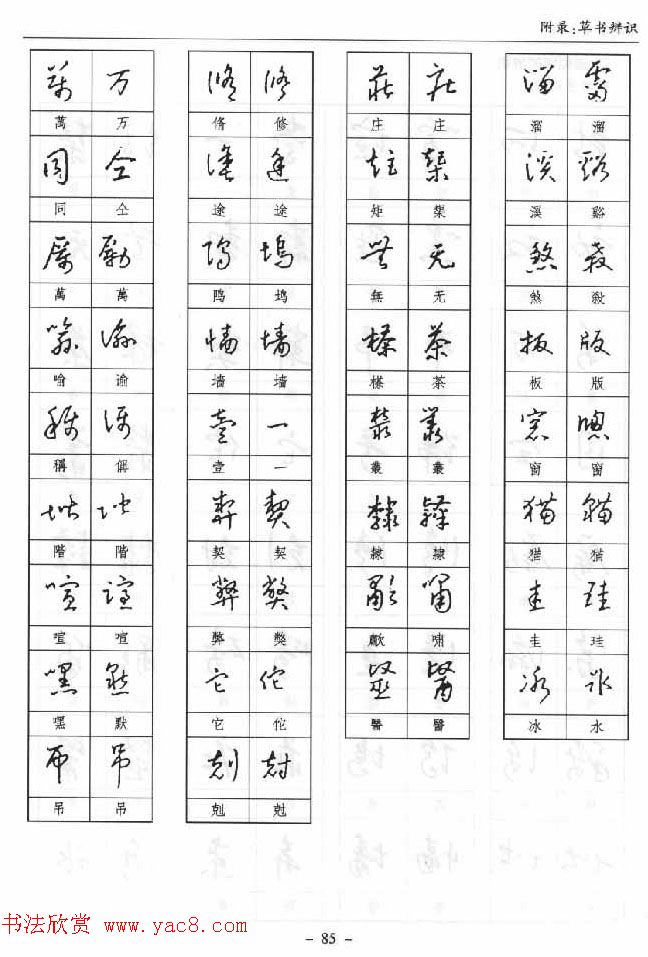 附录:草书辨识
萬 万
同 仝
萬 萬
喻 谕
稱 偁
階 階
喧 喧
嘿 默
吊 吊
俻 修
途 途
鸣 坞
墙 墙
壹 一
契 契
弊 獘
它 佗
剋 尅
庄 庄
矩 榘
無 无
檪 茶
叢 叢
隸 隸
歗 嘯
醫 醫
溜 溜
溪 谿
煞 殺
板 版
窗 窗
猫 猫
圭 珪
冰 氷
书法欣赏 www.yac8.com
- 85 -